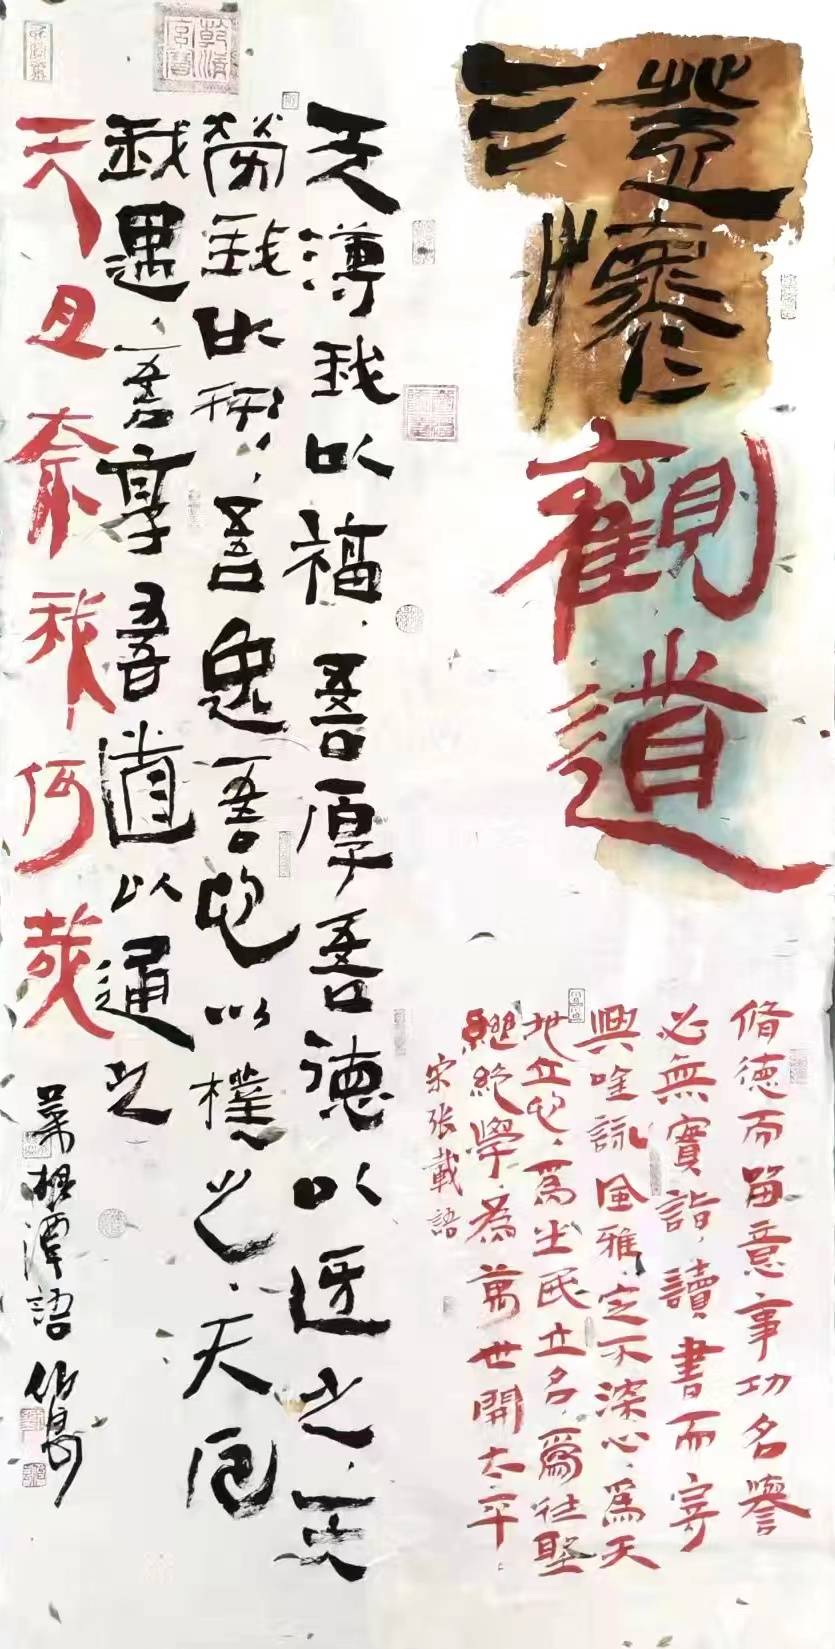 澄懷觀道
脩德而留意事功名譽
必無實詣,讀書而寄
興吟詠風雅,定不深心,爲天
地立心,爲生民立名,爲往聖
繼絕學,爲萬世開太平
宋張載語
天薄我以福,吾厚吾德以迓之,天
勞我以形,吾逸吾心以樸之,天厄
我遇,吾享吾道以通之
天且奈我何哉
菜根潭語
乾清宮寶